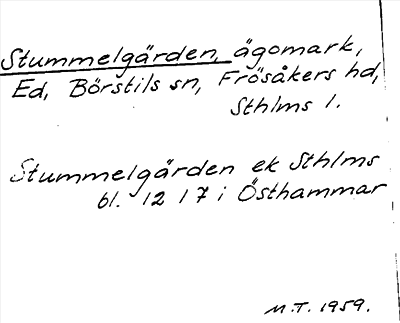 Stummelgärden, ägomark,
Ed, Börstils sn, Frösåkers hd,
Sthlms l.
Stummelgärden ek Sthlms
bl. 12 17 i Östhammar
M.T. 1959.